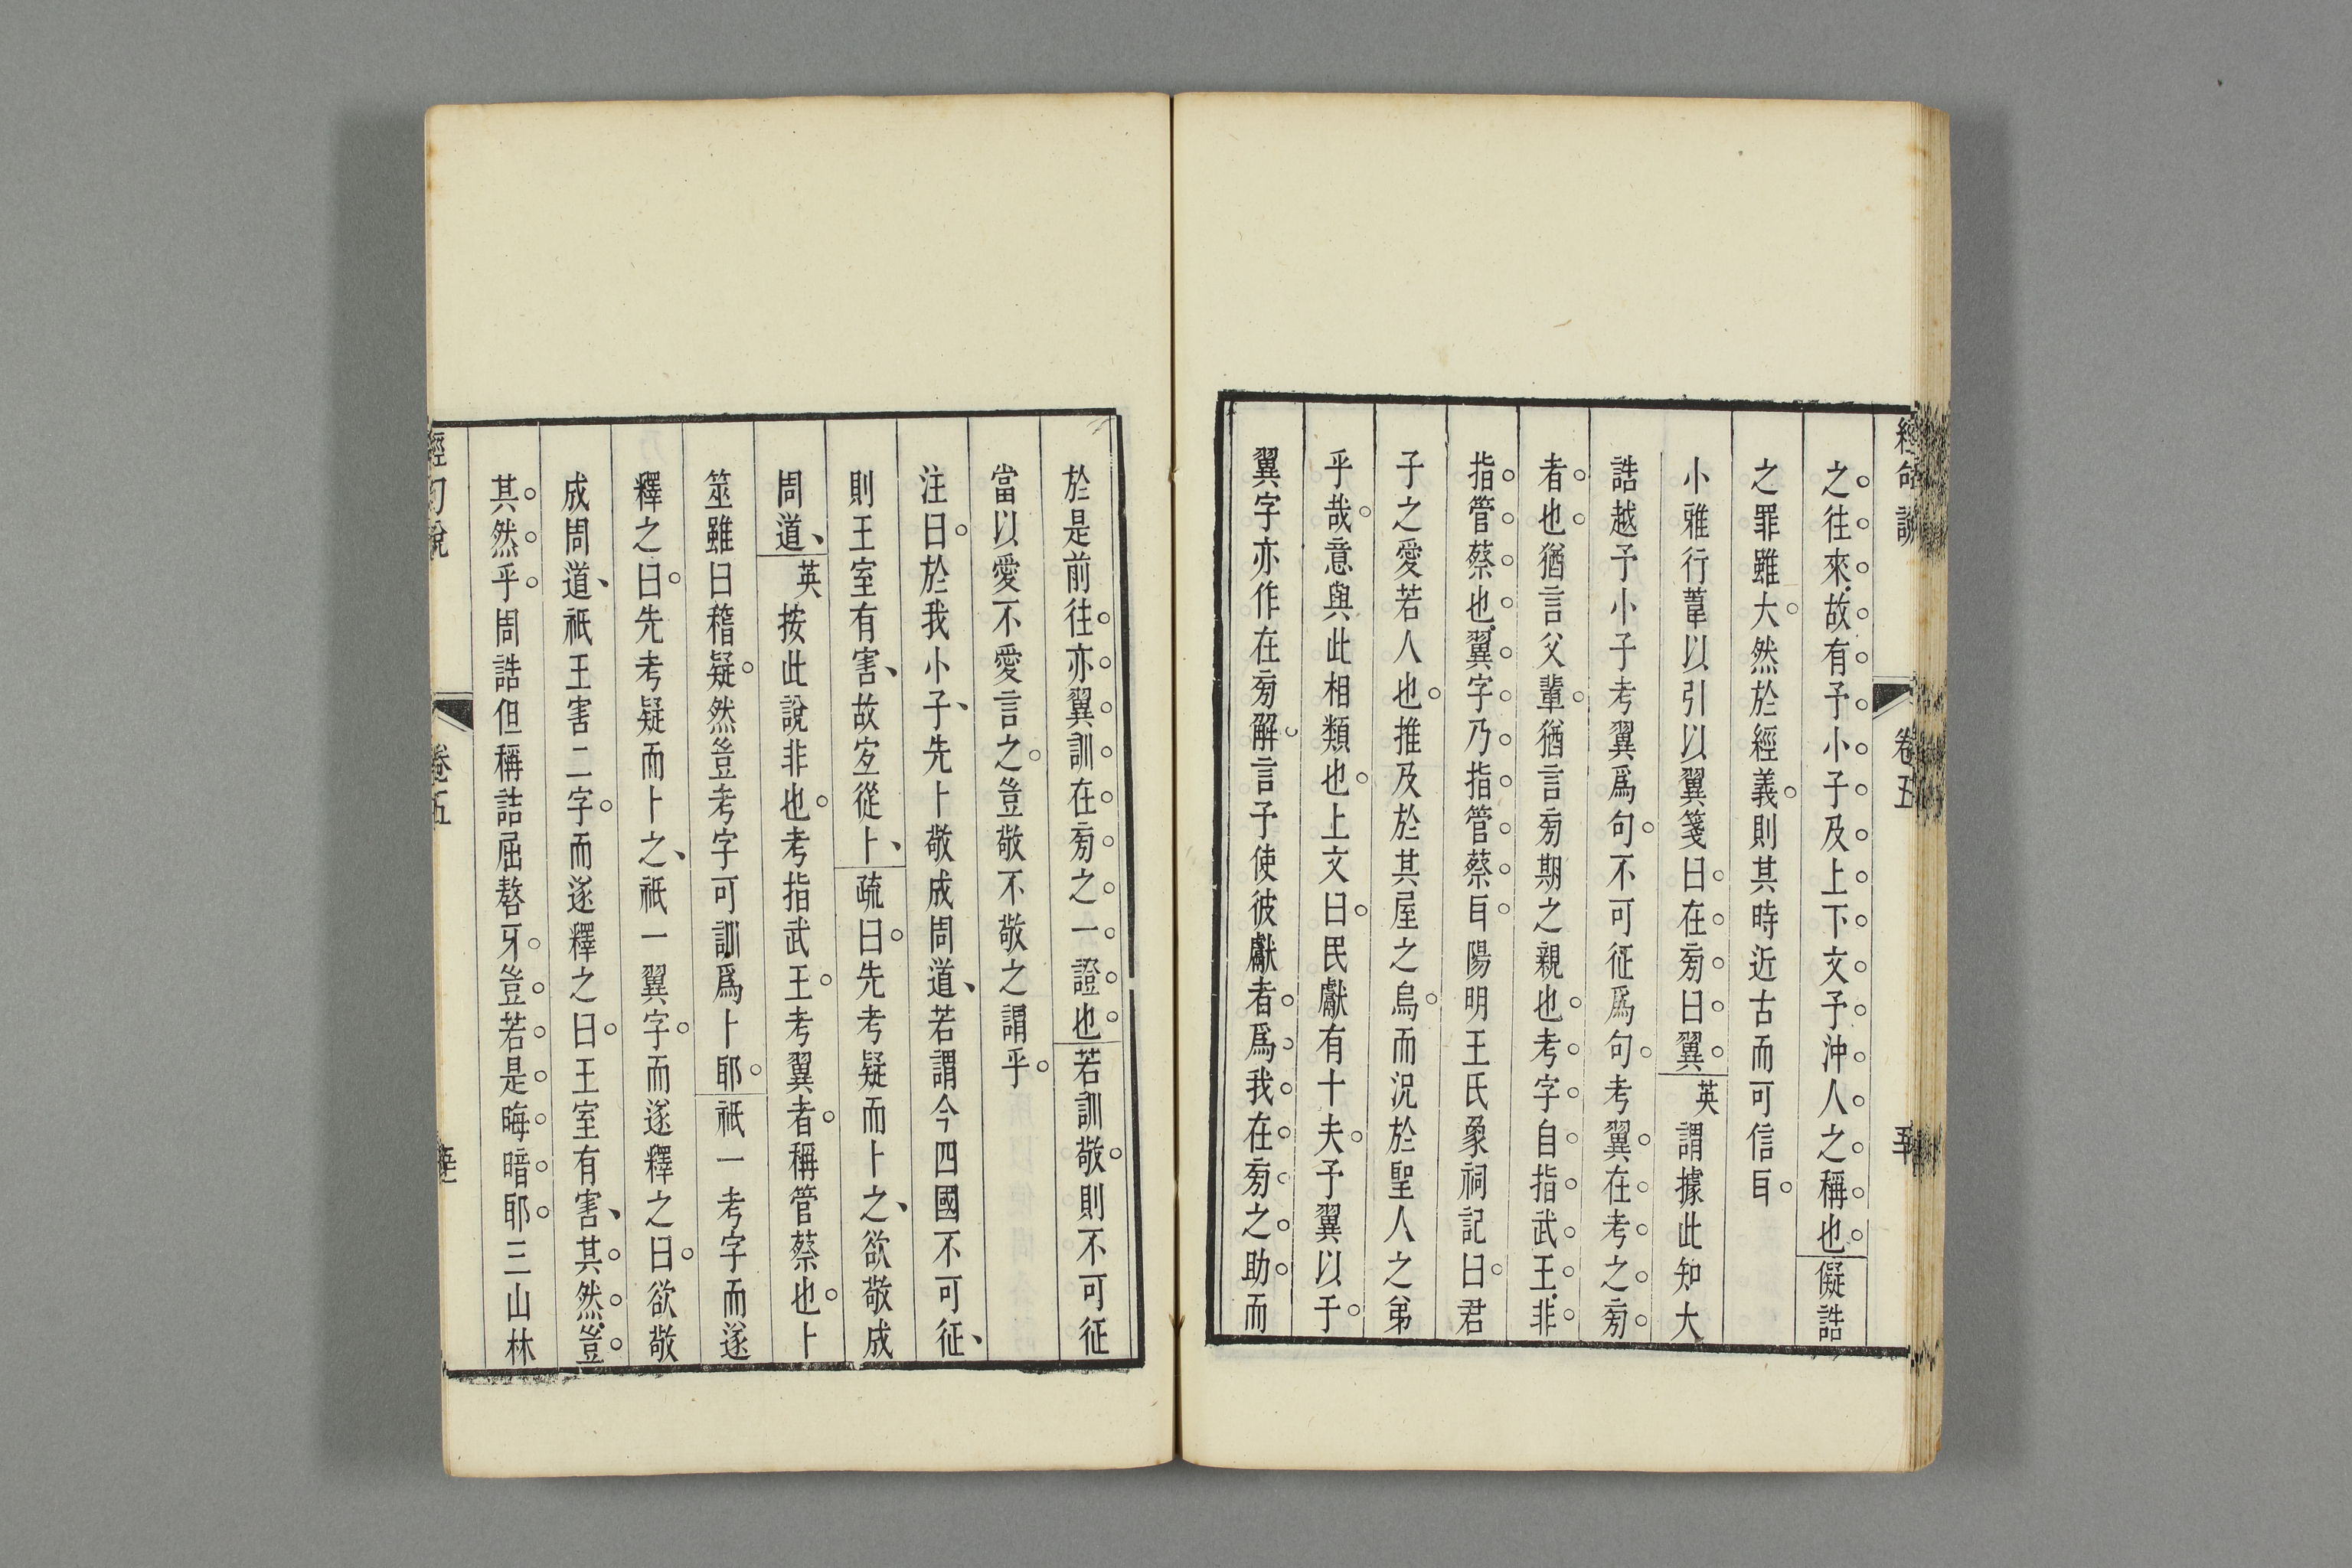 經句說
卷五
之往來故有予小子及上下文予沖人之稱也儗誥
之罪雖大然於經義則其時近古而可信𦣞
小雅行葦以引以翼箋曰在㫄曰翼英謂據此知大
誥越予小子考翼爲句不可征爲句考翼在考之㫄
者也猶言父輩猶言㫄期之親也考字自指武王非
指管蔡也翼字乃指管蔡𦣞陽明王氏象祠記曰君
子之愛若人也推及於其屋之烏而況於聖人之弟
乎哉意與此相類也上文曰民獻有十夫予翼以于
翼字亦作在㫄解言予使彼獻者爲我在㫄之助而
於是前往亦翼訓在㫄之一證也若訓敬則不可征
當以愛不愛言之豈敬不敬之謂乎
注曰於我小子先卜敬成周道若謂今四國不可征
則王室有害故宐從卜疏曰先考疑而卜之欲敬成
周道英按此說非也考指武王考翼者稱管蔡也卜
筮雖曰稽疑然豈考字可訓爲卜耶祇一考字而遂
釋之曰先考疑而卜之祇一翼字而遂釋之曰欲敬
成周道祇王害二字而遂釋之曰王室有害其然豈
其然乎周誥但稱詰屈聱牙豈若是晦暗耶三山林
經句說
卷五